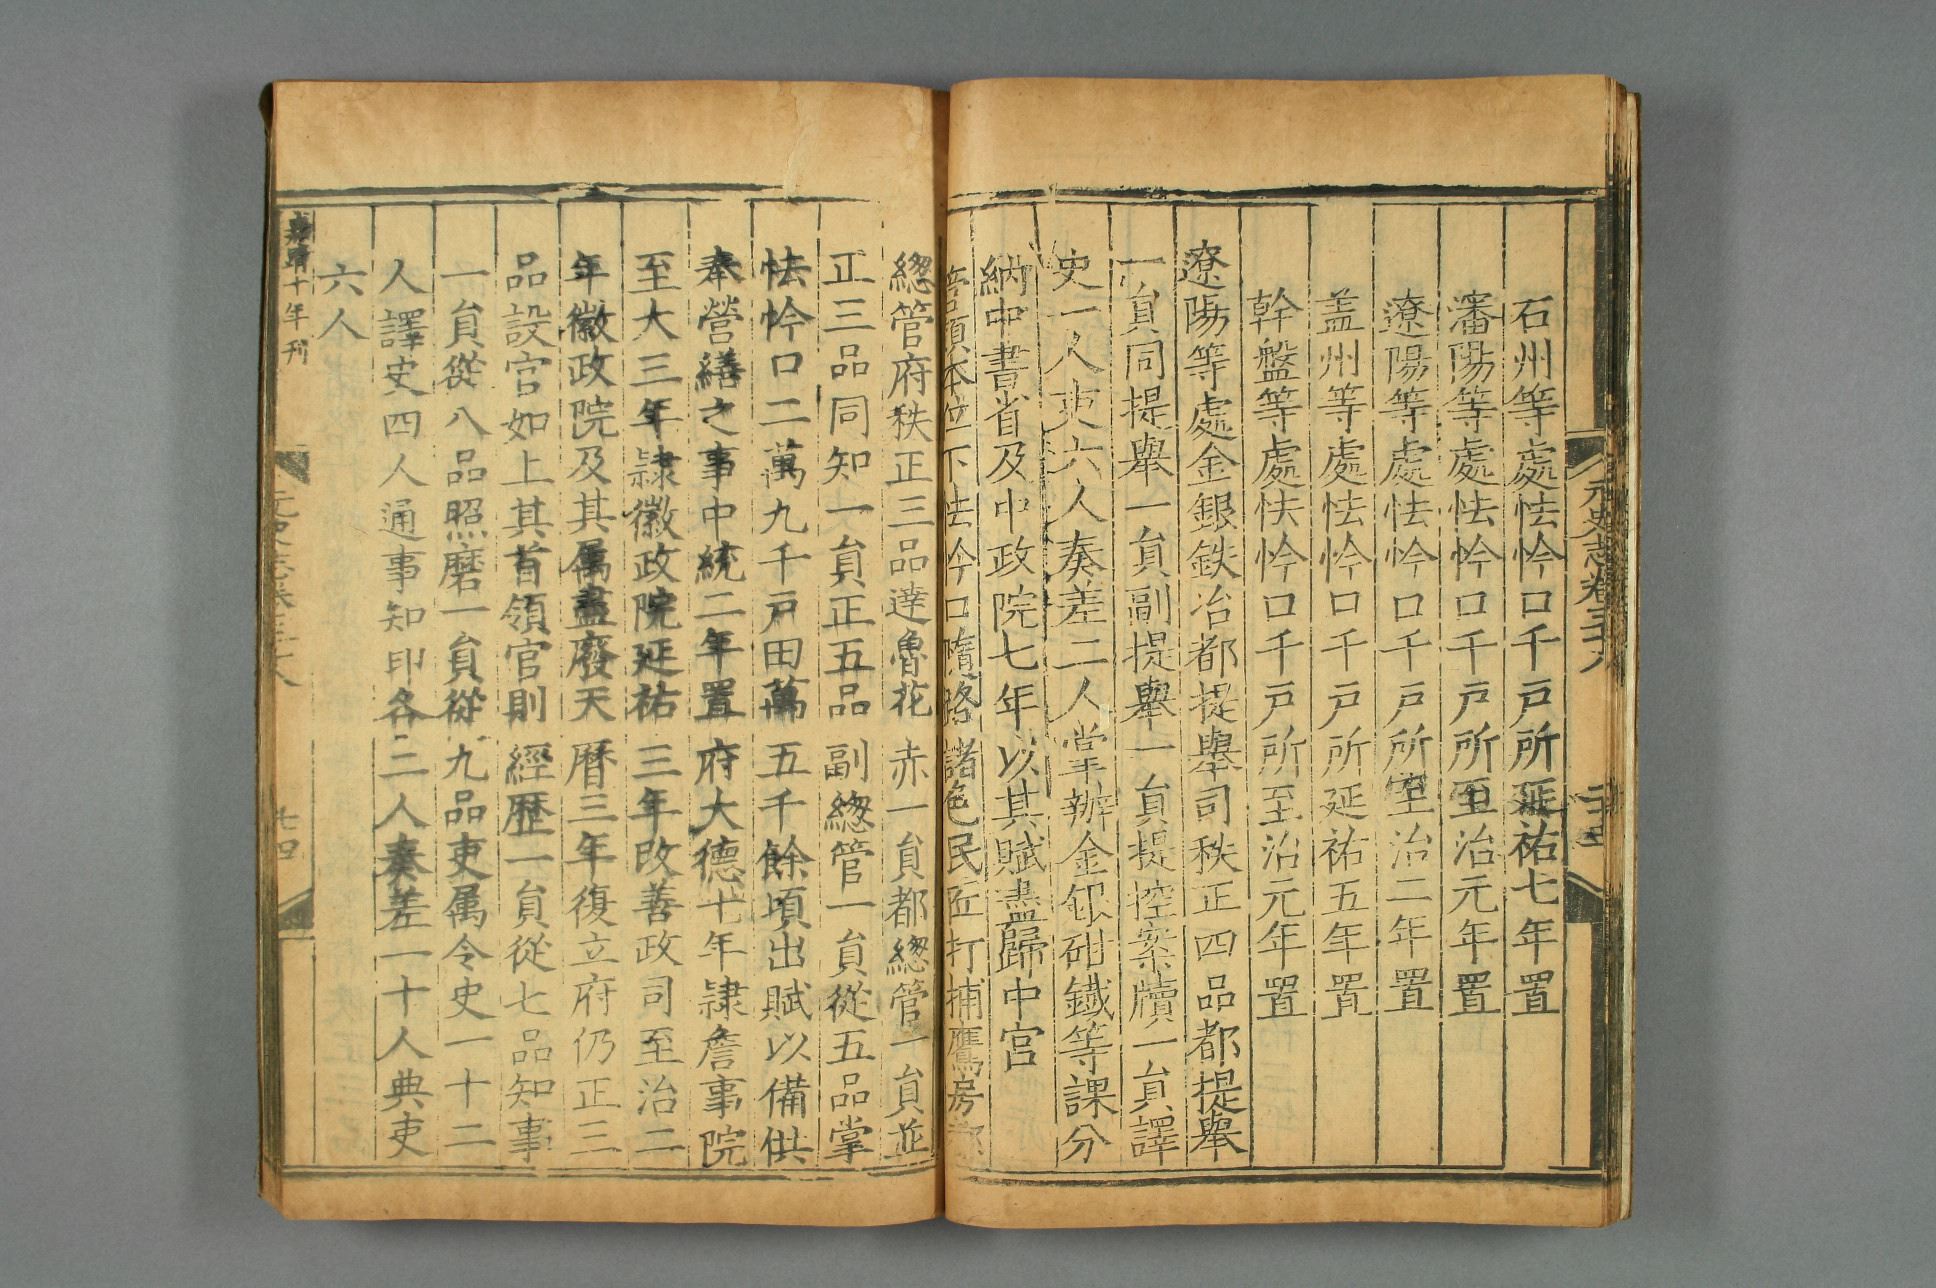 元史志卷三十八
石州等處怯怜口千戸所延祐七年置
瀋陽等處怯怜口千戸所至治元年置
遼陽等處怯怜口千戸所至治二年置
盖州等處怯怜口千戸所延祐五年置
幹盤等處怯怜口千戸所至治元年置
遼陽等處金銀鉄冶都提舉司秩正四品都提舉
一員同提舉一員副提舉一員提控案牘一員譯
史一人吏六人奏差二人掌辦金銀砒鐡等課分
納中書省及中政院七年以其賦盡歸中宮
管領本位下怯怜口隨路諸色民匠打捕鷹房都
緫管府秩正三品達魯花赤一員都緫管一員並
正三品同知一員正五品副緫管一員從五品掌
怯怜口二萬九千戸田萬五千餘頃出賦以備供
奉營繕之事中統二年置府大德十年隷詹事院
至大三年隷徽政院延祐三年改善政司至治二
年徽政院及其属盡廢天曆三年復立府仍正三
品設官如上其首領官則經歷一員從七品知事
一員從八品照磨一員從九品吏属令史一十二
人譯史四人通事知印各二人奏差一十人典吏
六人
嘉靖十年刊
元史志卷三十八
七四